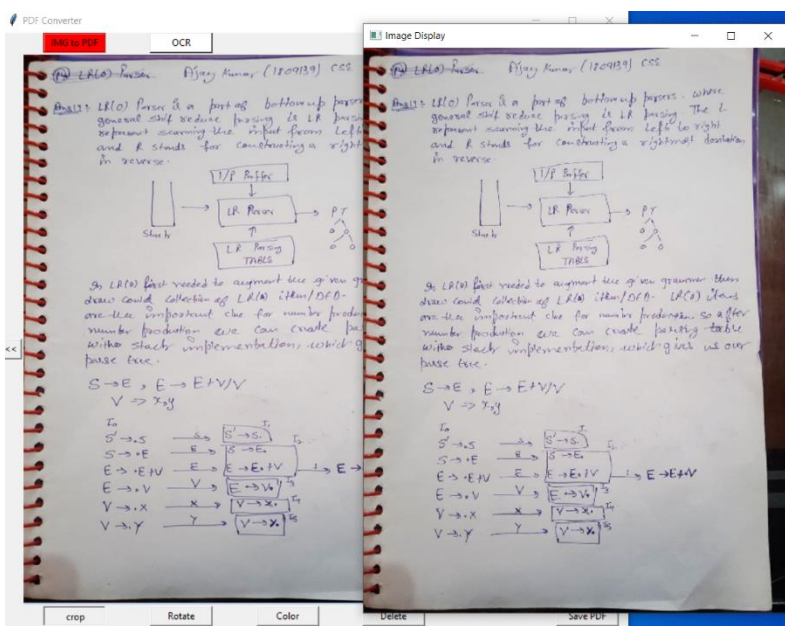 PDF Converter
IMG to PDF
OCR
LR(0) Parser Ajay Kumar (1809139) CSS
LR(0) Parser is a part of bottom up parser
general shift reduce parsing is LR
represent scanning the input from Left
and R stands for constructing a right
in reverse.
I/P Buffer
Stack
LR Parser
PT
LR Parsing
TABLE
In LR(0) first needed to augment the given
draw could collection of LR(0) item/DFA.
are the important clue for number
number production we can create
with stack implementation, which
parse tree.
S → E , E → E+V/V
V => x,y
I₀
S' → .S S S' → S.
S → .E E S → E.
E → .E+V E E → E.+V E →
E → .V V E → V.
V → .X X V → x.
V → .Y Y V → Y.
<<
crop
Rotate
Color
Delete
Save PDF
Image Display
LR(0) Parser Ajay Kumar (1809139) CSS
LR(0) Parser is a part of bottom up parsers. where
general shift reduce parsing is LR parsing. The L
represent scanning the input from Left to right
and R stands for constructing a rightmost
in reverse.
I/P Buffer
Stack
LR Parser
PT
LR Parsing
TABLE
In LR(0) first needed to augment the given grammer then
draw could collection of LR(0) item/DFA. LR(0) items
are the important clue for number production so after
number production we can create parsing table
with stack implementation, which gives us our
parse tree.
S → E , E → E+V/V
V => x,y
I₀
S' → .S S S' → S.
S → .E E S → E.
E → .E+V E E → E.+V E → E+.V
E → .V V E → V.
V → .X X V → x.
V → .Y Y V → Y.